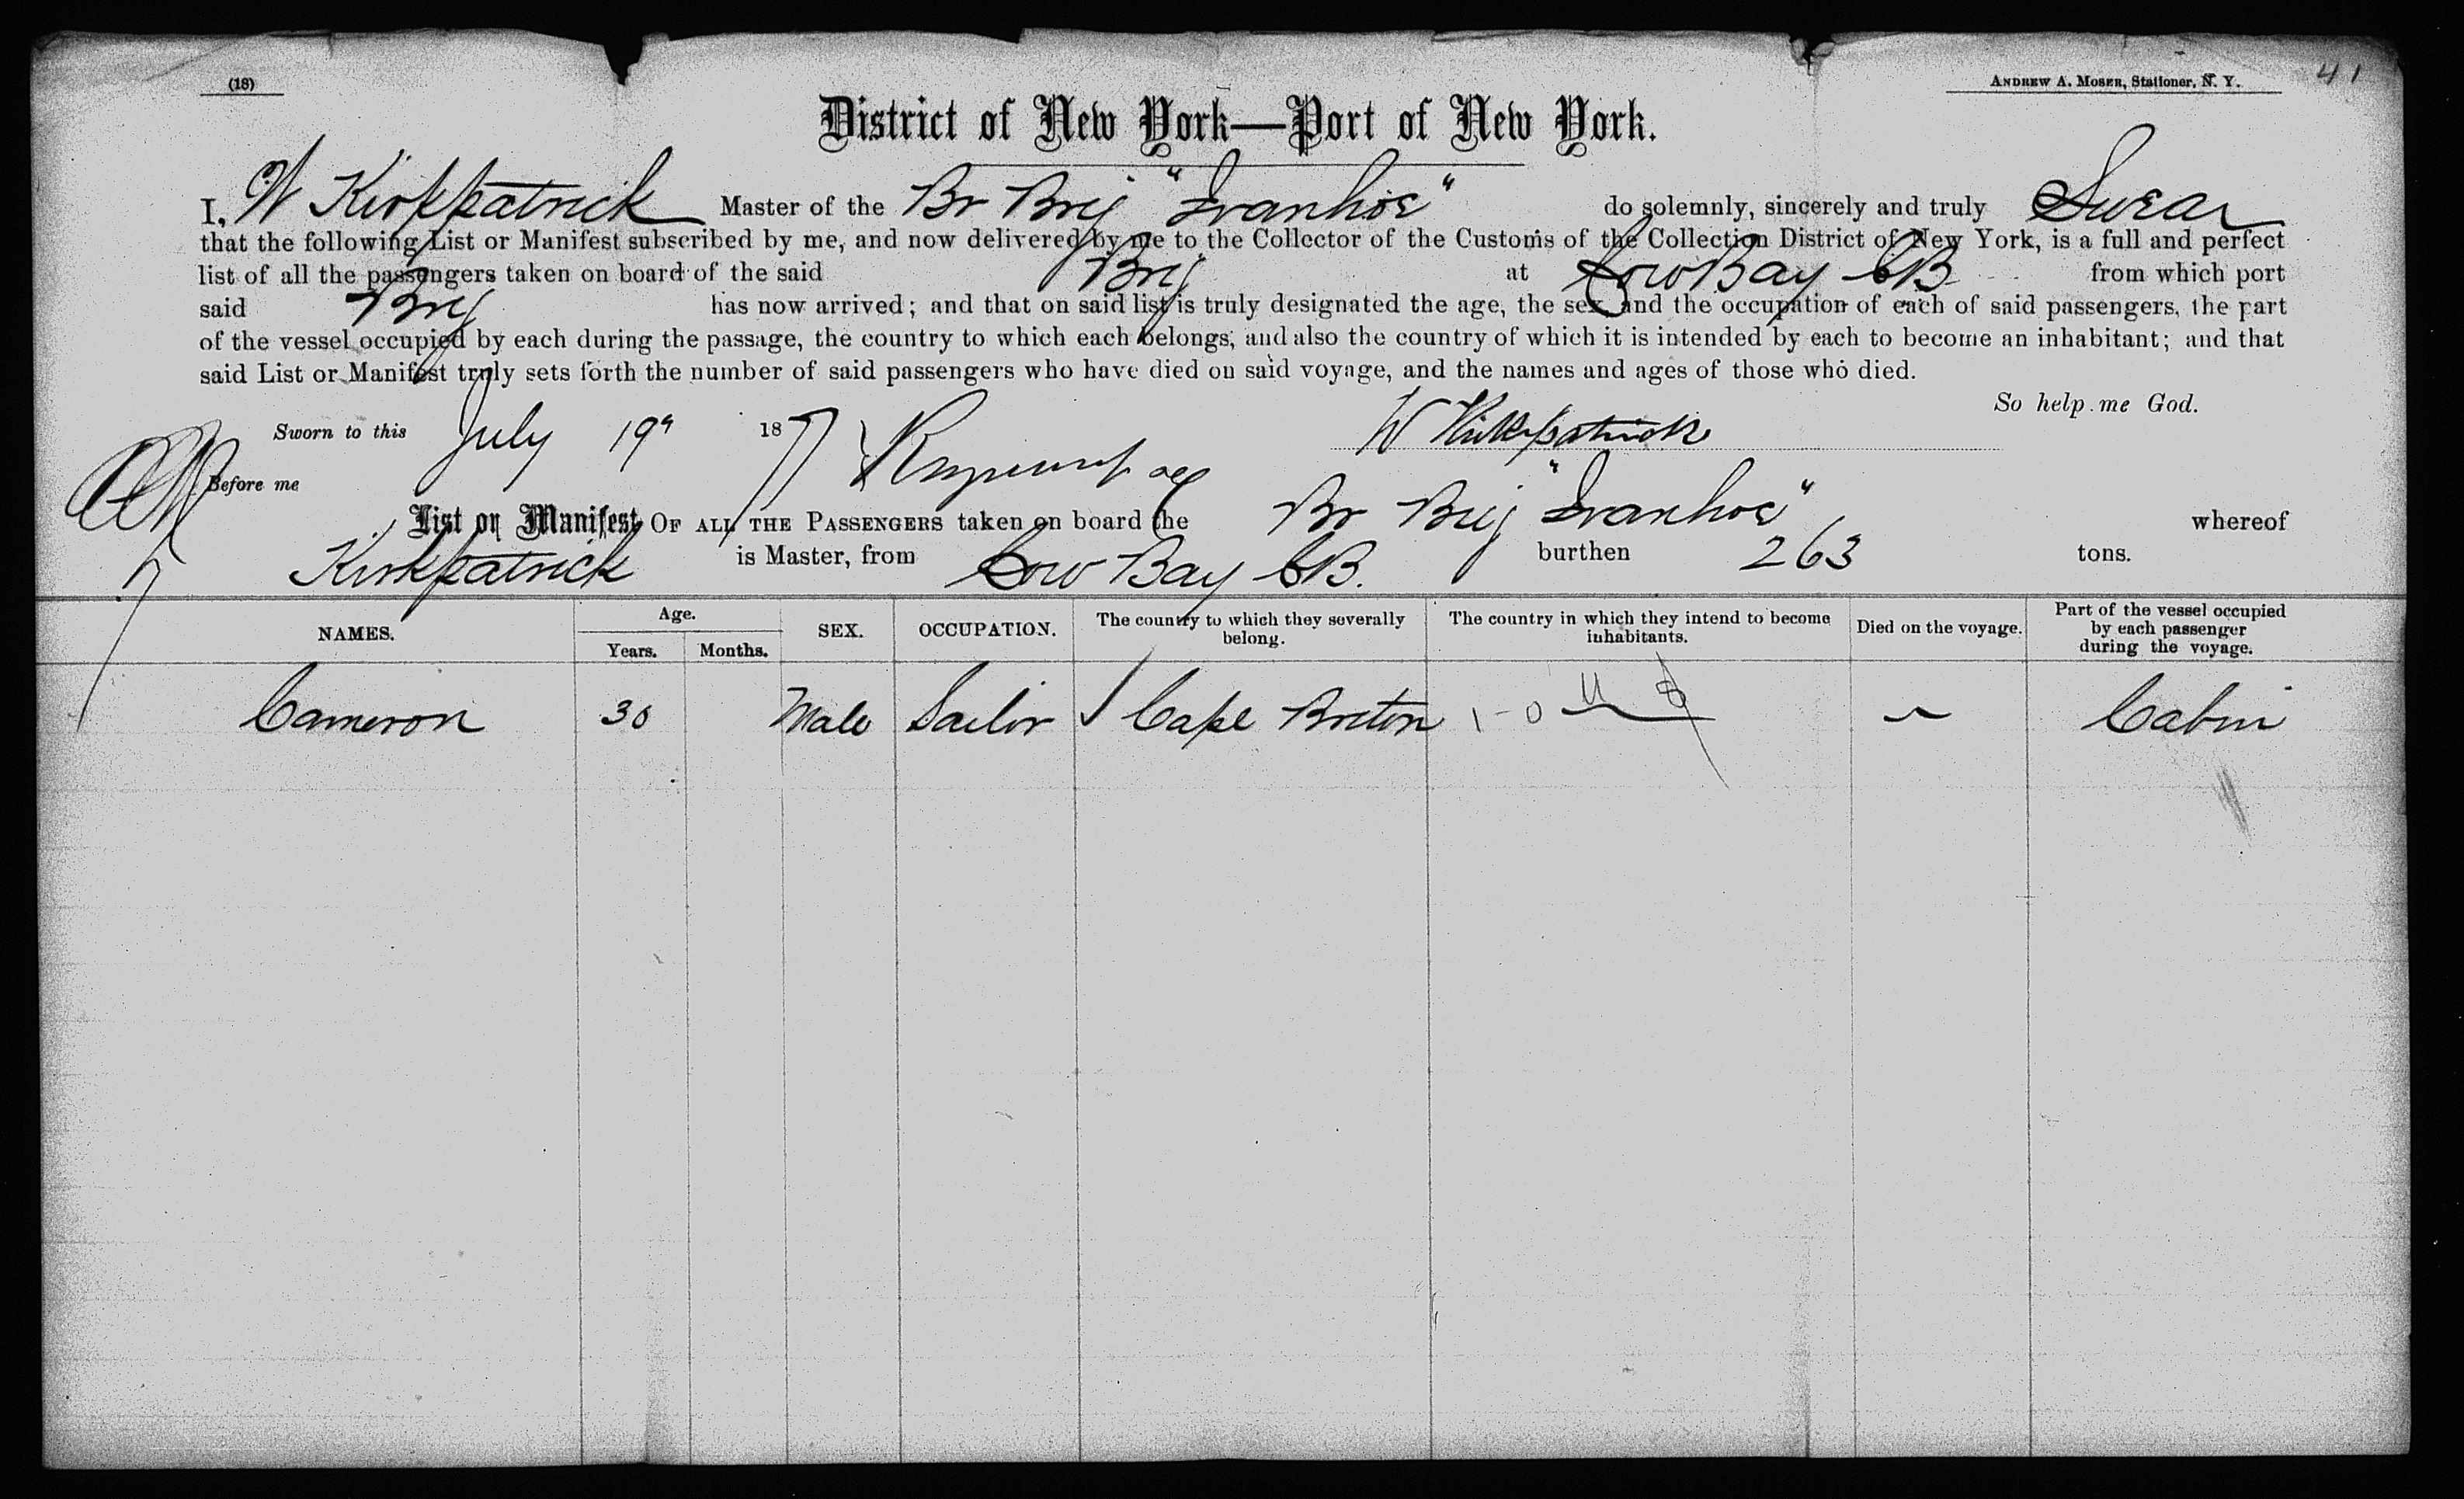 (18)
ANDREW A. MOSER, Stationer, N. Y.
41
District of New York—Port of New York.
I, W Kirkpatrick Master of the Br Brig "Ivanhoe" do solemnly, sincerely and truly Swear
that the following List or Manifest subscribed by me, and now delivered by me to the Collector of the Customs of the Collection District of New York, is a full and perfect
list of all the passengers taken on board of the said Brig at Low Bay CB from which port
said Brig has now arrived; and that on said list is truly designated the age, the sex and the occupation of each of said passengers, the part
of the vessel occupied by each during the passage, the country to which each belongs; and also the country of which it is intended by each to become an inhabitant; and that
said List or Manifest truly sets forth the number of said passengers who have died on said voyage, and the names and ages of those who died.
So help me God.
Sworn to this July 19" 1877 W Kirkpatrick
Before me
List or Manifest OF ALL THE PASSENGERS taken on board the Br Brig "Ivanhoe" whereof
Kirkpatrick is Master, from Low Bay CB. burthen 263 tons.
NAMES. Age. Years. Months. SEX. OCCUPATION. The country to which they severally belong. The country in which they intend to become inhabitants. Died on the voyage. Part of the vessel occupied by each passenger during the voyage.
Cameron 30 Male Sailor Cape Breton U S Cabin